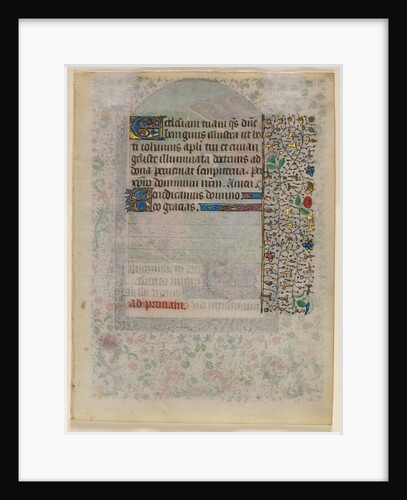 Ecclesiam tuam q̄s dn̄e
benignus illustra ut bea
ti iohannis apl̄i tui et euan
geliste illuminata doctrinis ad
dona perueniat sempiterna. Per
xp̄m dominum nr̄m. Amen
Benedicamus domino
Deo gracias.
ad primam.